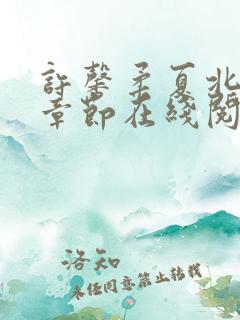 許馨柔夏北
章節在綫閱
洛知
未经同意禁止转载